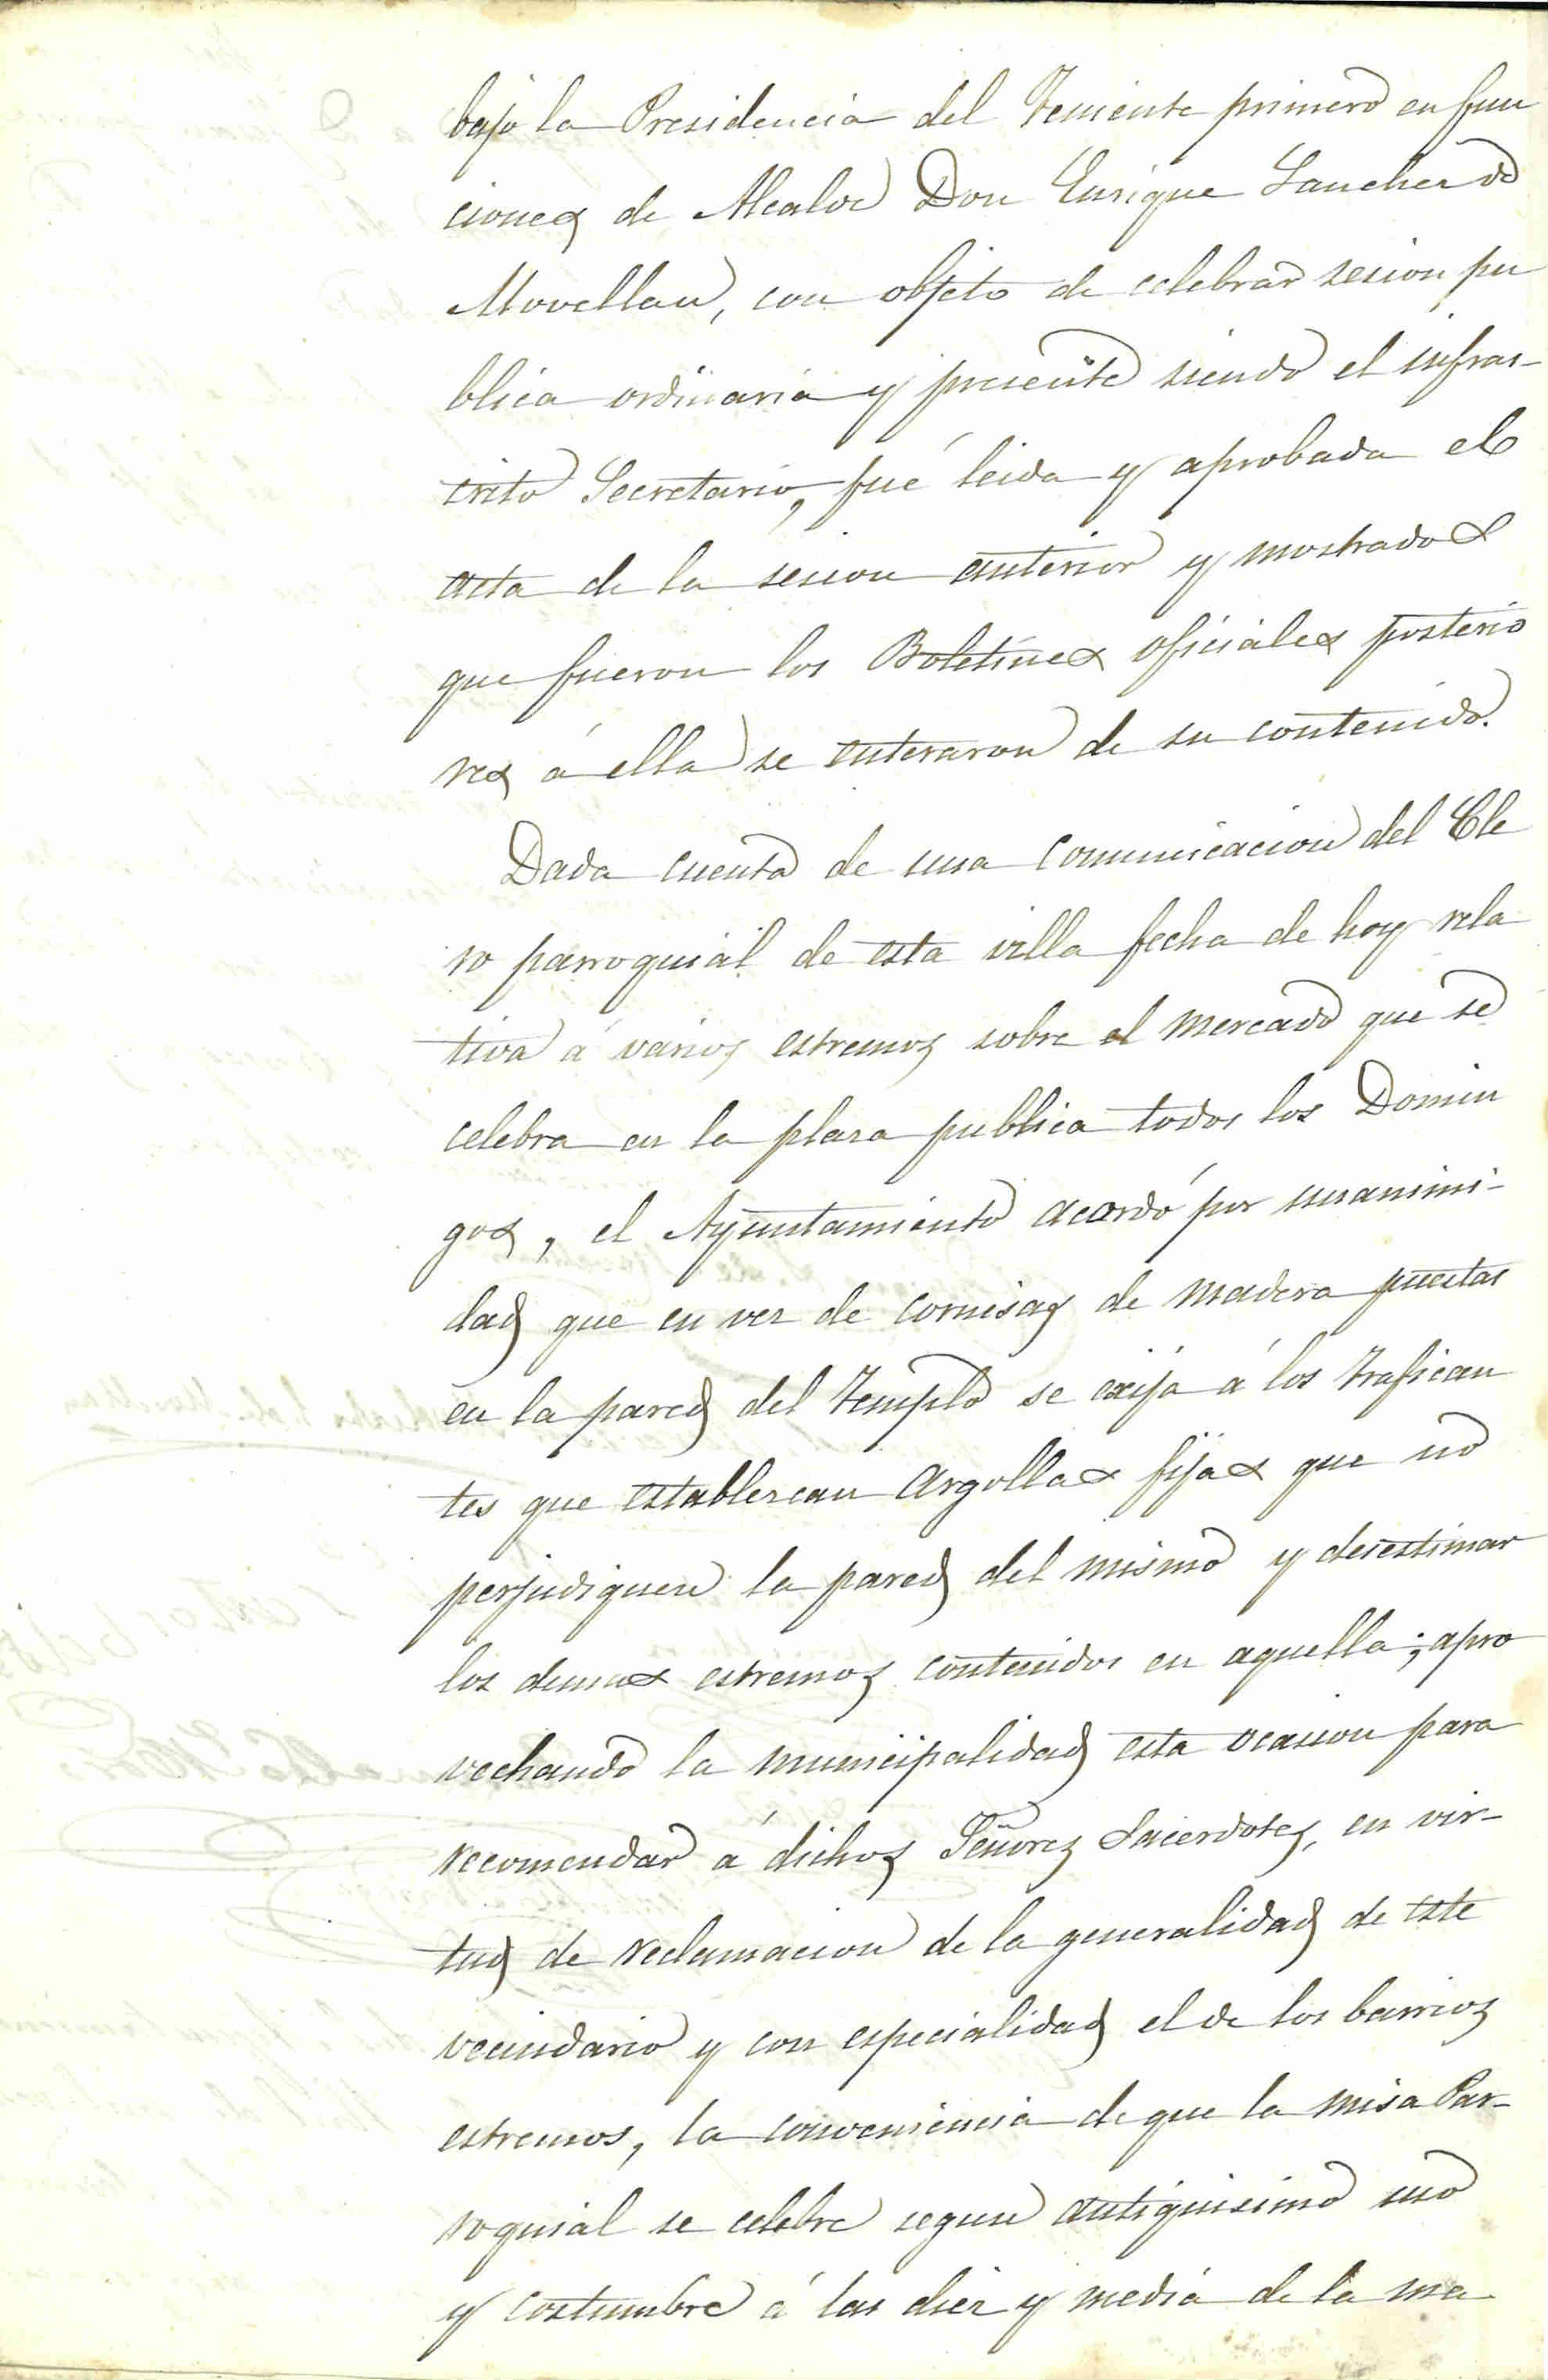 bajo la Presidencia del Teniente primero en fun
ciones de Alcalde Don Enrique Sanchez de
Movellan, con objeto de celebrar sesion pu
blica ordinaria y presente siendo el infras-
crito Secretario, fué leida y aprobada el
acta de la sesion anterior y mostrados
que fueron los Boletines oficiales posterio
res á ella se enteraron de su contenido.
Dada cuenta de una comunicacion del Cle
ro parroquial de esta villa fecha de hoy rela
tiva á varios estremos sobre el mercado que se
celebra en la plaza publica todos los Domin
gos, el Ayuntamiento acordó por unanimi-
dad que en vez de cornisas de madera puestas
en la pared del Templo se exija á los trafican
tes que establezcan Argollas fijas que no
perjudiquen la pared del mismo y desestimar
los demas estremos contenidos en aquella; apro
vechando la municipalidad esta ocasion para
recomendar á dichos Señores Sacerdotes, en vir-
tud de reclamacion de la generalidad de este
vecindario y con especialidad el de los barrios
estremos, la conveniencia de que la misa Par-
roquial se celebre segun antiguisimo uso
y costumbre á las diez y media de la ma